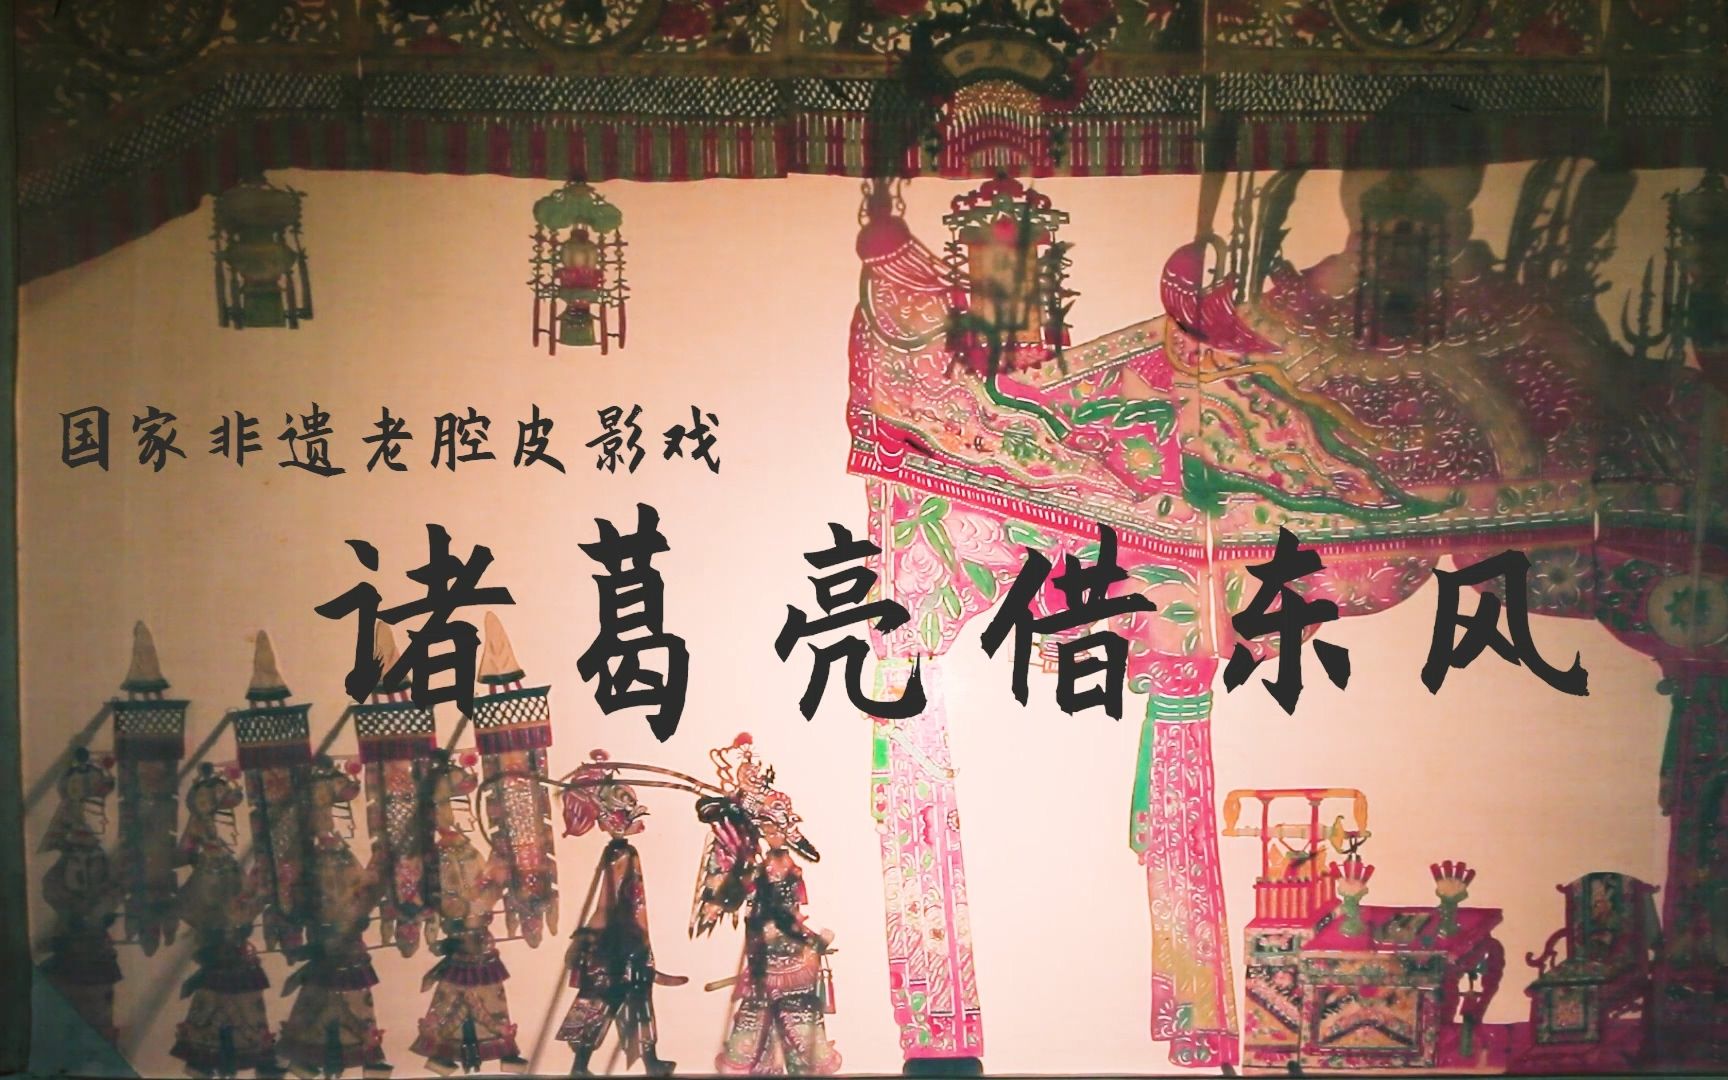 国家非遗老腔皮影戏
诸葛亮借东风